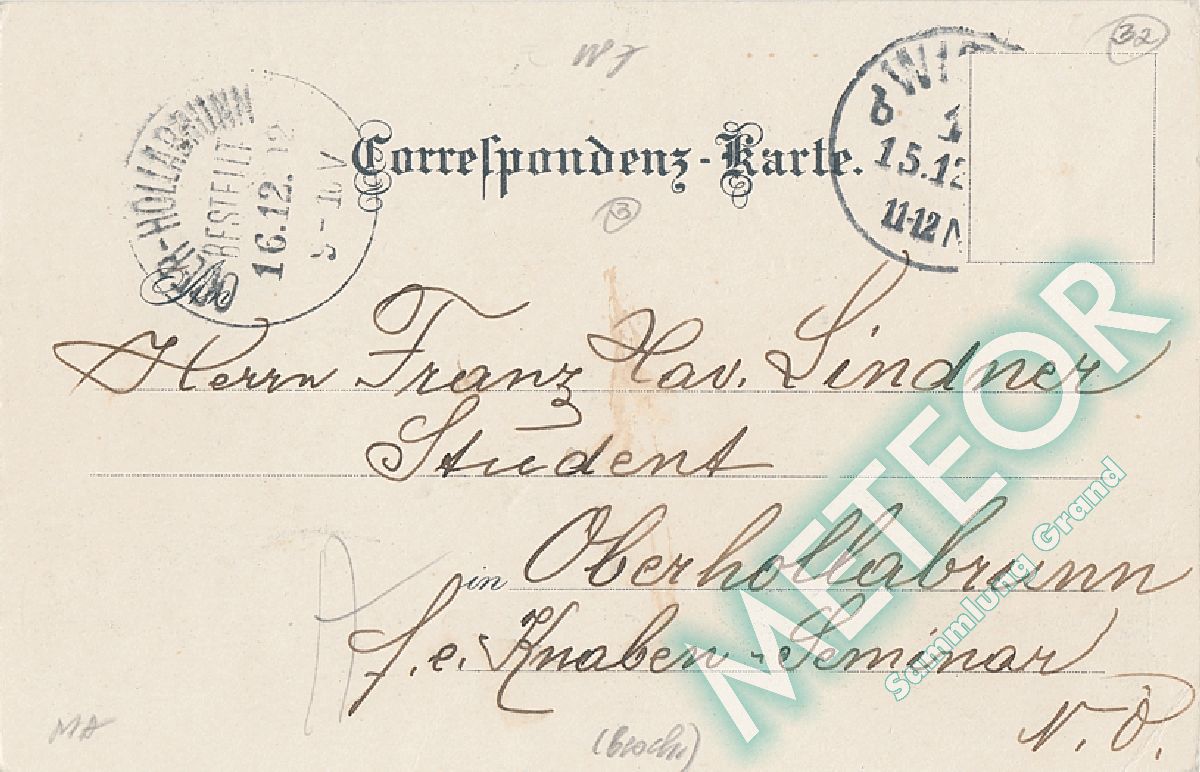 W7
32
OBER-HOLLABRUNN
BESTELLT
16.12.12
9-10V
Correspondenz-Karte.
WI
1
15.12
11-12N
3
Herrn Franz Xav. Lindner
Student
in Oberhollabrunn
f. e. Knaben-Seminar
N. Ö.
MA
METEOR
Sammlung Grand